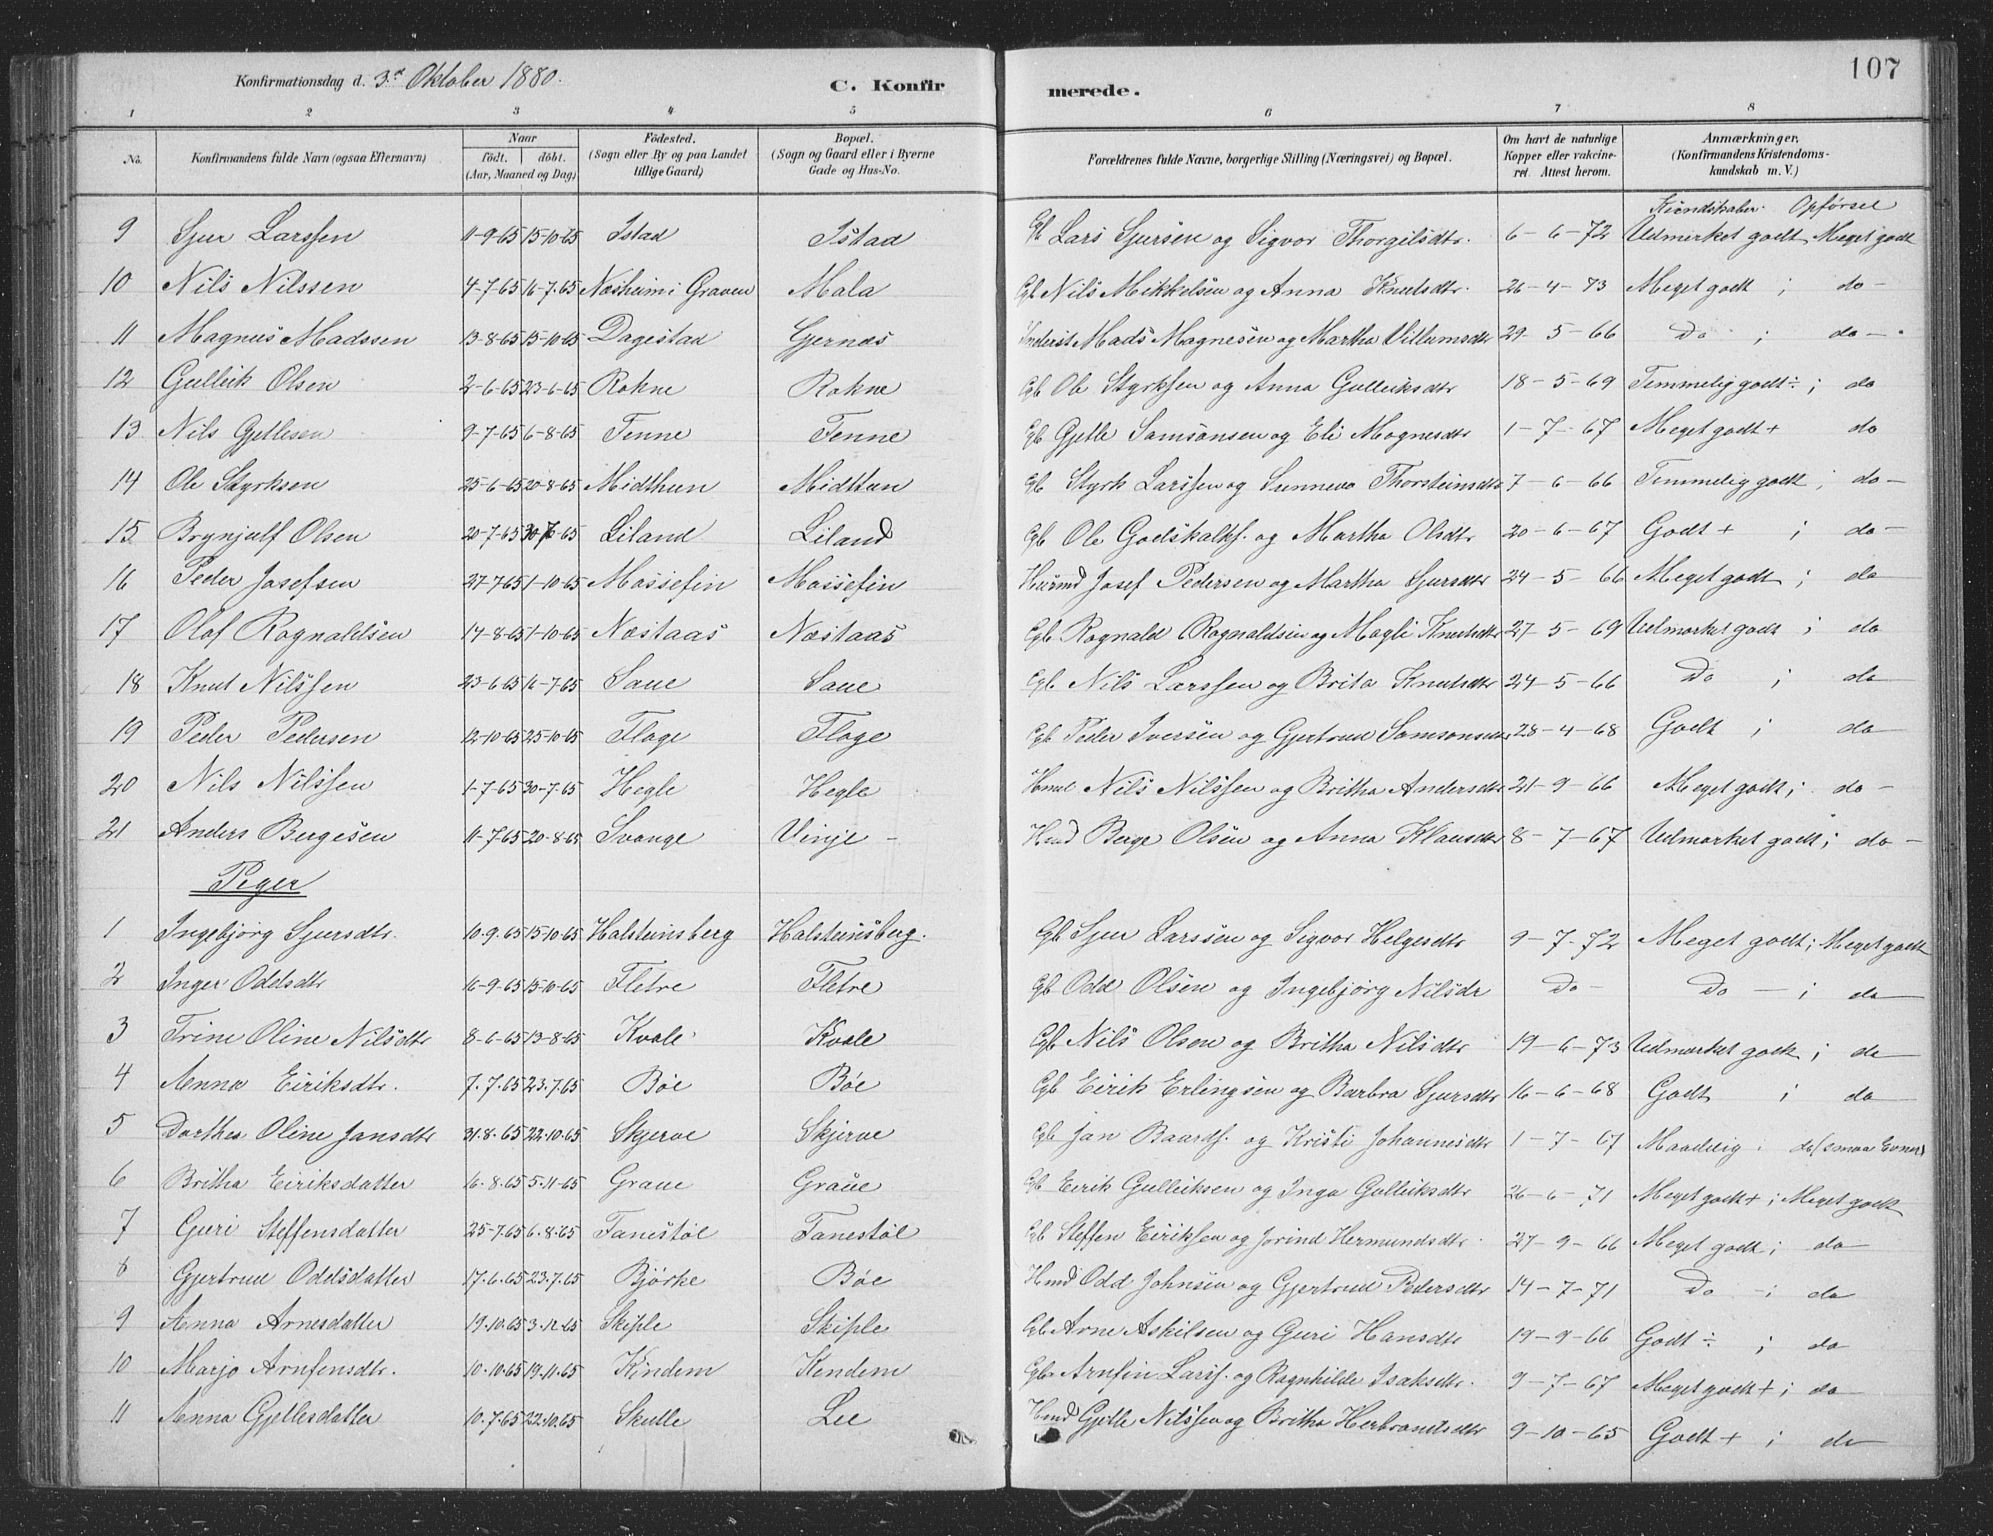 107
Konfirmationsdag d. 3die Oktober 1880.
C. Konfirmerede.
1 2 3 4 5 6 7 8
No. Konfirmandens fulde Navn (ogsaa Efternavn) Naar født. døbt. (Aar, Maaned og Dag) Fødested. (Sogn eller By og paa Landet tillige Gaard) Bopæl. (Sogn og Gaard eller i Byerne Gade og Hus-No. Forældrenes fulde Navne, borgerlige Stilling (Næringsvei) og Bopæl. Om havt de naturlige Kopper eller vakcineret. Attest herom. Anmærkninger, (Konfirmandens Kristendomskundskab m. V.)
Kundskaber Opførsel
9 Sjur Larssen 11-9-65 15-10-65 Istad Istad Gb Lars Sjursen og Sigvor Thorgilsdtr. 6-6-72 Udmerket godt Meget godt
10 Nils Nilssen 4-7-65 16-7-65 Næsheim i Graven Mala Gb Nils Mikkelsen og Anna Knutsdtr. 26-4-73 Meget godt ; do
11 Magnus Madssen 13-8-65 15-10-65 Dagestad Gjernæs Inderst Mads Magnesen og Martha Villumsdtr 29-5-66 Do ; do
12 Gulleik Olsen 2-6-65 23-6-65 Rokne Rokne Gb Ole Styrksen og Anna Gulleiksdtr 18-5-69 Temmelig godt ÷ ; do
13 Nils Gjetlesen 9-7-65 6-8-65 Tenne Tenne Gb Gjetle Samsonsen og Eli Magnesdtr 1-7-67 Meget godt + do
14 Ole Styrksen 25-6-65 20-8-65 Midthun Midthun Gb Styrk Larssen og Sunneva Thorsteinsdtr 7-6-66 Temmelig godt ; do
15 Brynjulf Olsen 20-7-65 Liland Liland Gb Ole Godskalks. og Martha Olsdtr 20-6-67 Godt + ; do
16 Peder Josefsen 27-7-65 1-10-65 Mossefin Mossefin Husmd Josef Pedersen og Martha Sjursdtr 24-5-66 Meget godt ; do
17 Olaf Rognaldsen 14-8-65 1-10-65 Næstaas Næstaas Gb Rognald Rognaldsen og Magli Knutsdtr 27-5-69 Udmerket godt ; do
18 Knut Nilssen 23-6-65 16-7-65 Saue Saue Gb Nils Larssen og Brita Knutsdtr 24-5-66 Do ; do
19 Peder Pedersen 12-10-65 25-10-65 Flage Flage Gb Peder Iversen og Gjertrud Samsonsdtr 28-4-68 Godt ; do
20 Nils Nilssen 1-7-65 30-7-65 Hegle Hegle Hmd Nils Nilssen og Britha Andersdtr 21-9-66 Meget godt ; do
21 Anders Bergesen 11-7-65 20-8-65 Svange Vinje Hmd Berge Olsen og Anna Klausdtr 8-7-67 Udmerket godt ; do
Piger
1 Ingebjørg Sjursdtr. 10.9.65 15-10-65 Halsteinsberg Halsteinsberg. Gb Sjur Larssen og Sigvor Helgesdtr 9-7-72 Meget godt ; Meget godt
2 Inger Oddsdtr 16-9-65 15-10-65 Fletre Fletre Gb Odd Olsen og Ingebjørg Nilsdr Do Do ; do
3 Trine Oline Nilsdtr 8-6-65 13-8-65 Kvale Kvale Gb Nils Olsen og Britha Nilsdtr 19-6-73 Udmerket godt ; do
4 Anna Eiriksdtr. 7.7.65 23.7.65 Bøe Bøe Gb Eirik Erlingsen og Barbra Sjursdtr 16-6-68 Godt ; do
5 Dorthea Oline Jansdtr 31.8.65 22.10.65 Skjerve Skjerve Gb Jan Baards. og Kristi Johannesdtr 1-7-67 Maadelig. do (smaa Evner)
6 Britha Eiriksdatter 16.8.65 5.11-65 Graue Graue Gb Eirik Gulleiksen og Inga Gulleiksdtr 26-6-71 Meget godt + ; Meget godt
7 Guri Steffensdatter 25-7.65 6.8.65 Fanestøl Fanestøl Gb Steffen Eiriksen og Jorind Hermundsdtr. 27-9-66 Meget godt ; do
8 Gjertrud Oddsdatter 17.6.65 23.7.65 Bjørke Bøe Hmd Odd Johnsen og Gjertrud Pedersdtr 14-7-71 Do ; do
9 Anna Arnesdatter 19.10.65 3.12.65 Skiple Skiple Gb Arne Askilsen og Guri Hansdtr 19-9-66 Godt ÷ ; do
10 Marjo Arnfensdtr. 10.10.65 19.11.65 Kindem Kendem Gb Arnfin Larss. og Ragnhilde Isaksdtr. 9-7-67 Meget godt + ; do
11 Anna Gjellesdatter 10.7.65 22.10.65 Skutle Lee Hmd Gjelle Nilssen og Britha Herbrandsdtr 9-10-65 Godt + ; do